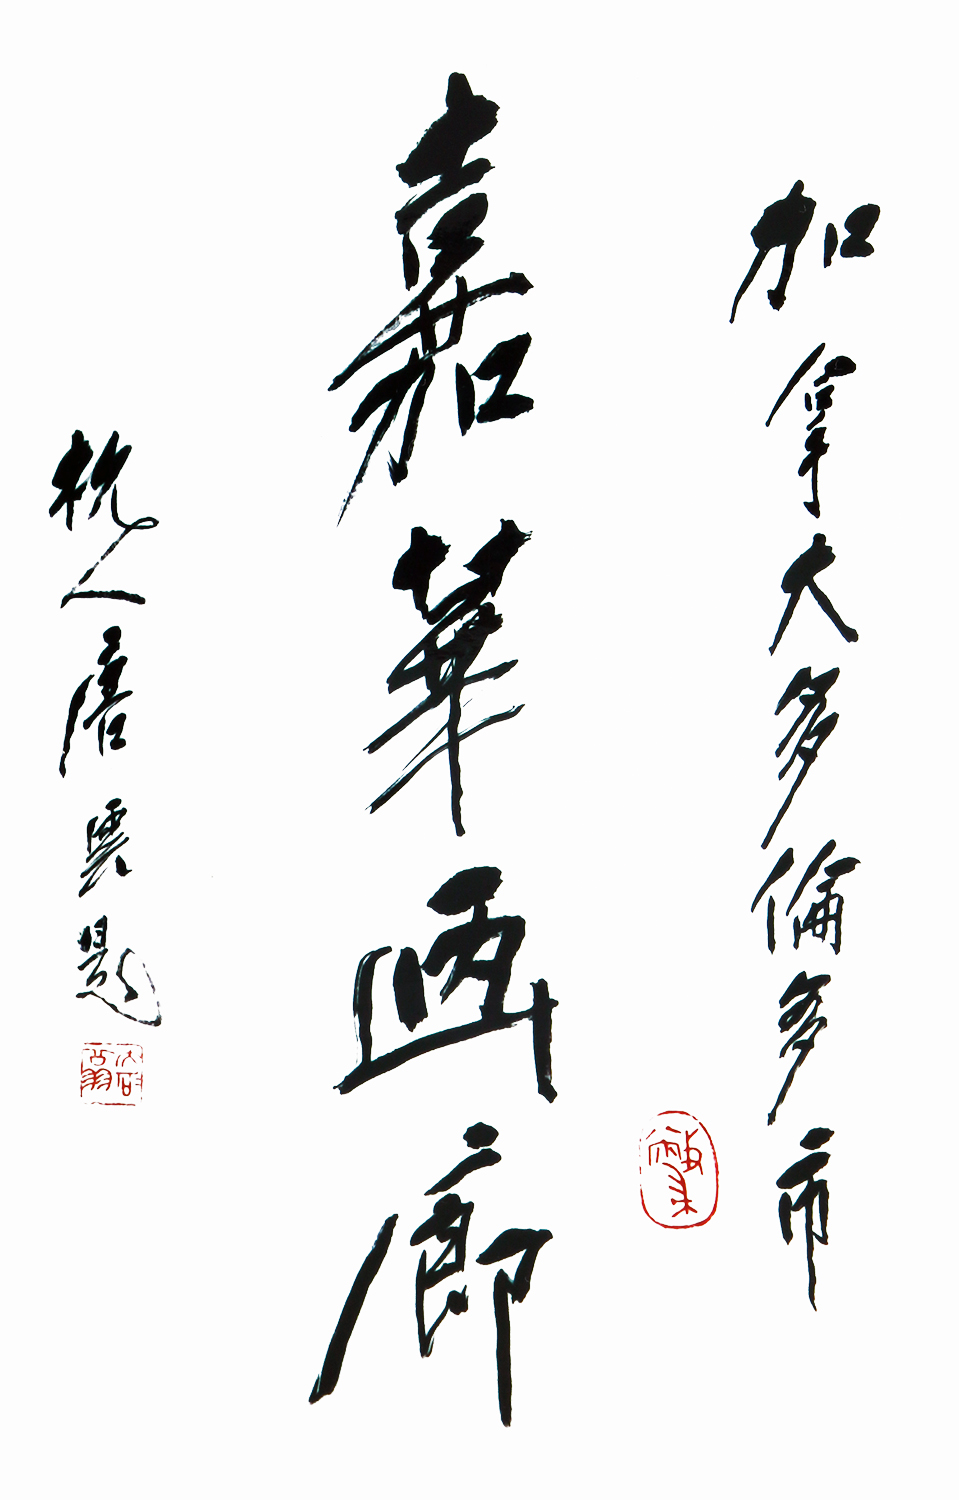 加拿大多倫多市
嘉華画廊
杭人唐雲題